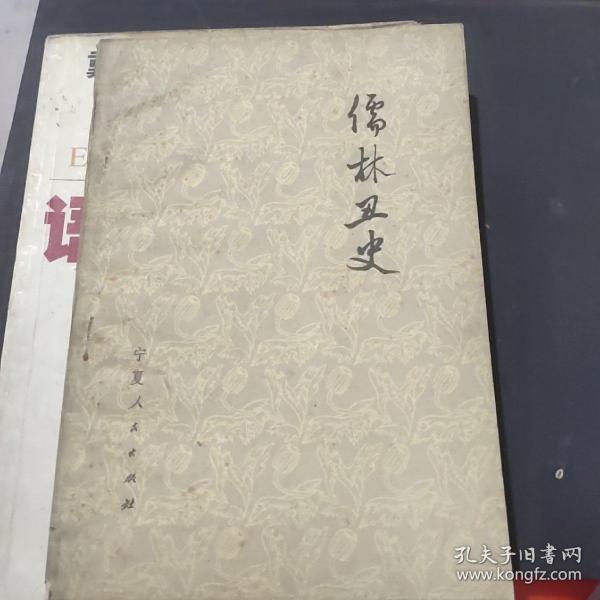 儒林丑史
宁夏人民出版社
E
语
孔夫子旧书网
www.kongfz.com